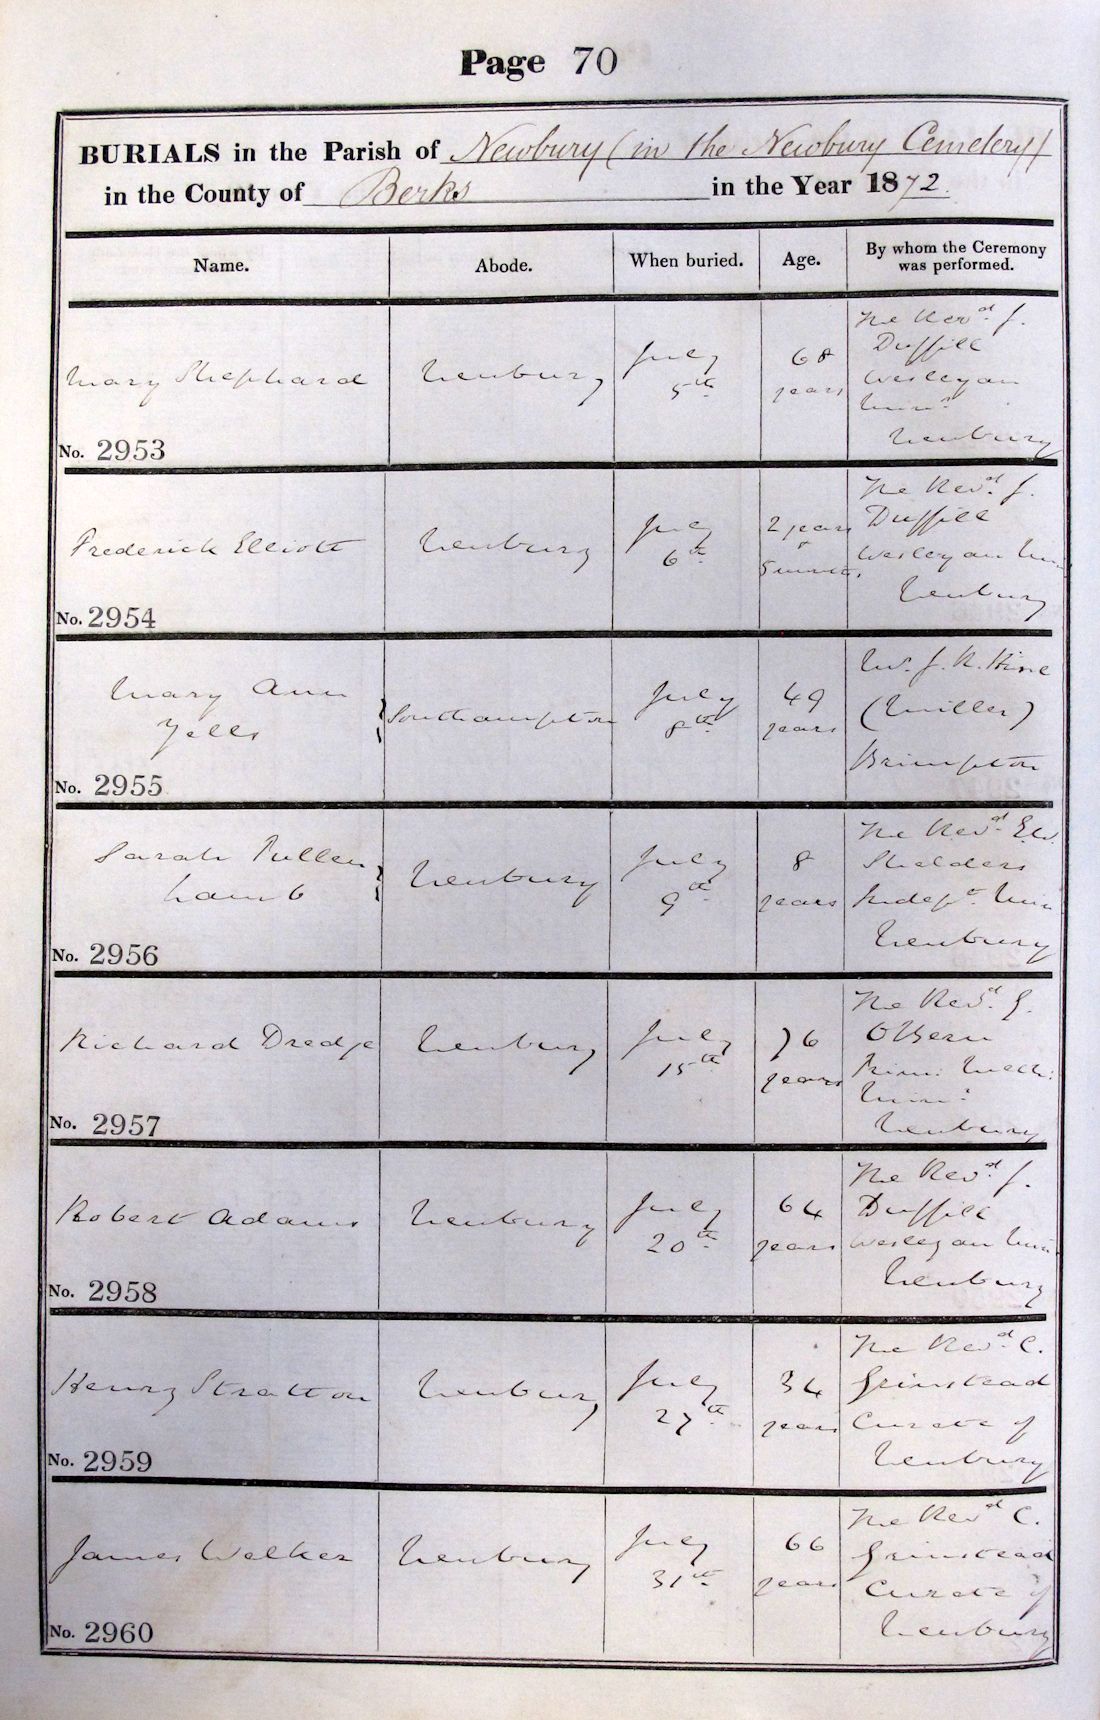 Page 70
BURIALS in the Parish of Newbury (in the Newbury Cemetery)
in the County of Berks in the Year 1872.
Name. Abode. When buried. Age. By whom the Ceremony was performed.
Mary Shephard
No. 2953
Newbury
July
5th
68
years
The Revd. J.
Duffill
Wesleyan
Minr.
Newbury
Frederick Elliott
No. 2954
Newbury
July
6th
2 years
&
5 months
The Revd. J.
Duffill
Wesleyan Min
Newbury
Mary Ann
Yells
No. 2955
Southampton
July
8th
49
years
Mr. J. R. Hine
(Miller)
Brimpton
Sarah Pullen
Lamb
No. 2956
Newbury
July
9th
8
years
The Revd. Ew.
Shelders
Indept. Min
Newbury
Richard Dredge
No. 2957
Newbury
July
15th
76
years
The Revd. G.
Obern
Prim: Meth:
Minr.
Newbury
Robert Adams
No. 2958
Newbury
July
20th
64
years
The Revd. J.
Duffill
Wesleyan Min
Newbury
Henry Stratton
No. 2959
Newbury
July
27th
34
years
The Revd. C.
Grinstead
Curate of
Newbury
James Walker
No. 2960
Newbury
July
31st
66
years
The Revd. C.
Grinstead
Curate of
Newbury